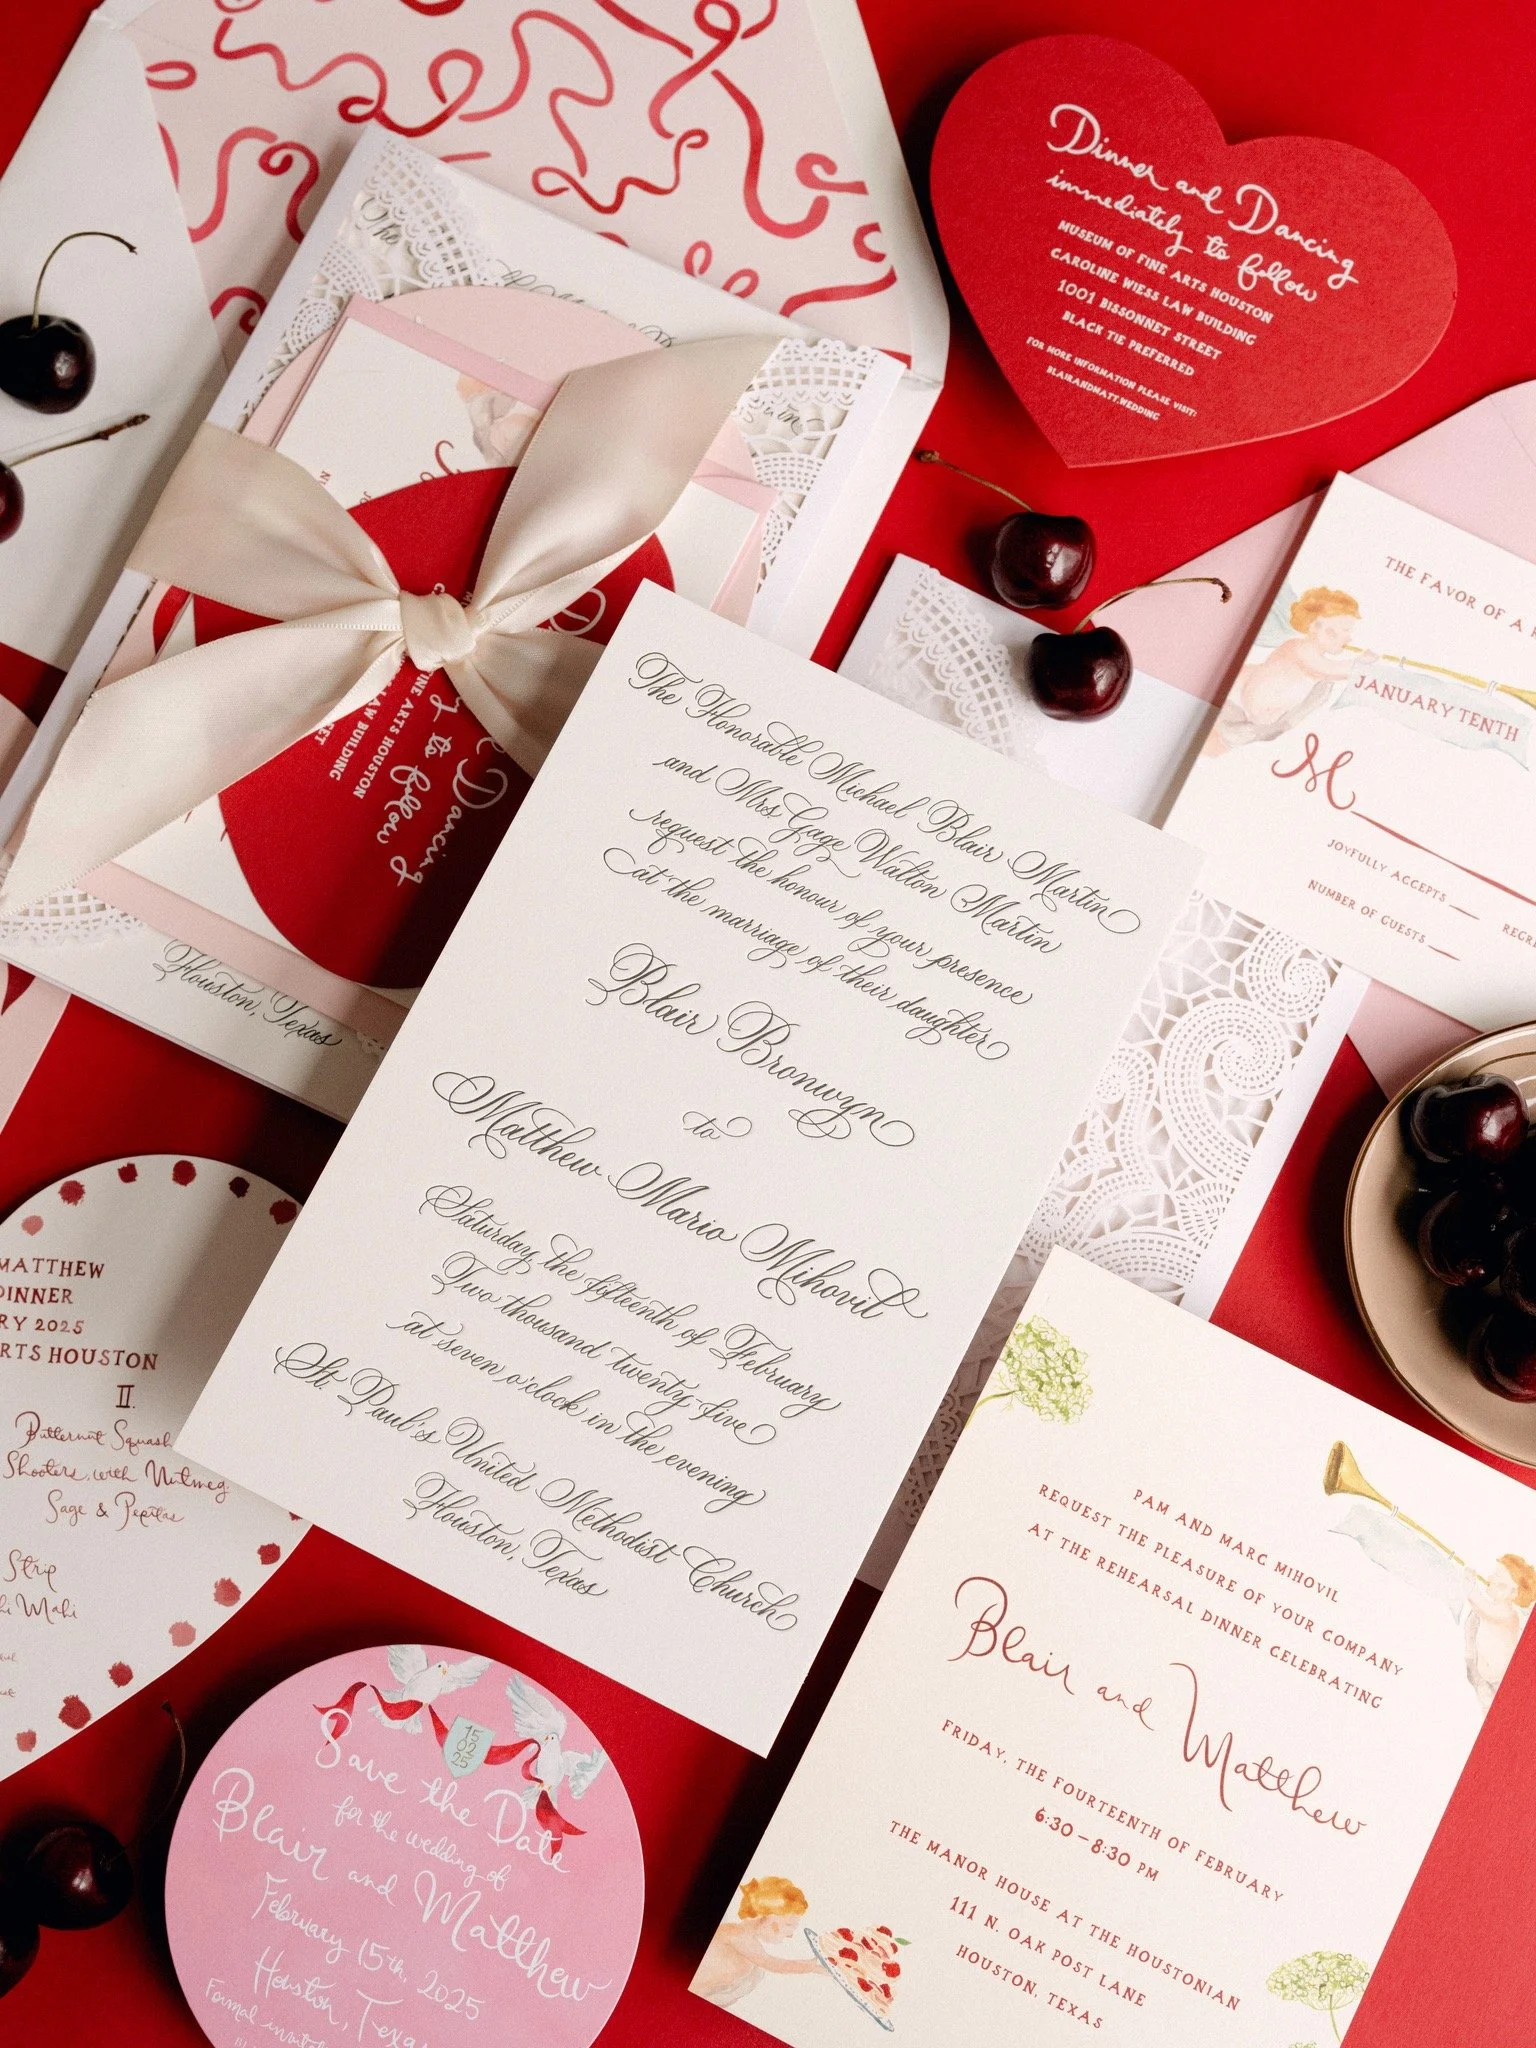 Dinner and Dancing
immediately to follow
MUSEUM OF FINE ARTS HOUSTON
CAROLINE WIESS LAW BUILDING
1001 BISSONNET STREET
BLACK TIE PREFERRED
FOR MORE INFORMATION PLEASE VISIT:
BLAIRANDMATT.WEDDING
The
Dancing
to follow
ARTS HOUSTON
LAW BUILDING
Houston, Texas
THE FAVOR OF A
JANUARY TENTH
M
JOYFULLY ACCEPTS
NUMBER OF GUESTS
The Honorable Michael Blair Martin
and Mrs Gage Walton Martin
request the honour of your presence
at the marriage of their daughter
Blair Bronwyn
to
Matthew Mario Mihovil
Saturday the fifteenth of February
Two thousand twenty-five
at seven o'clock in the evening
St. Paul's United Methodist Church
Houston, Texas
MATTHEW
DINNER
RY 2025
RTS HOUSTON
II.
Butternut Squash
Shooters with Nutmeg
Sage & Pepitas
Strip
Mahi
Save the Date
for the wedding of
Blair and Matthew
February 15th, 2025
Houston, Texas
Formal
15
02
25
PAM AND MARC MIHOVIL
REQUEST THE PLEASURE OF YOUR COMPANY
AT THE REHEARSAL DINNER CELEBRATING
Blair and Matthew
FRIDAY, THE FOURTEENTH OF FEBRUARY
6:30 – 8:30 PM
THE MANOR HOUSE AT THE HOUSTONIAN
111 N. OAK POST LANE
HOUSTON, TEXAS